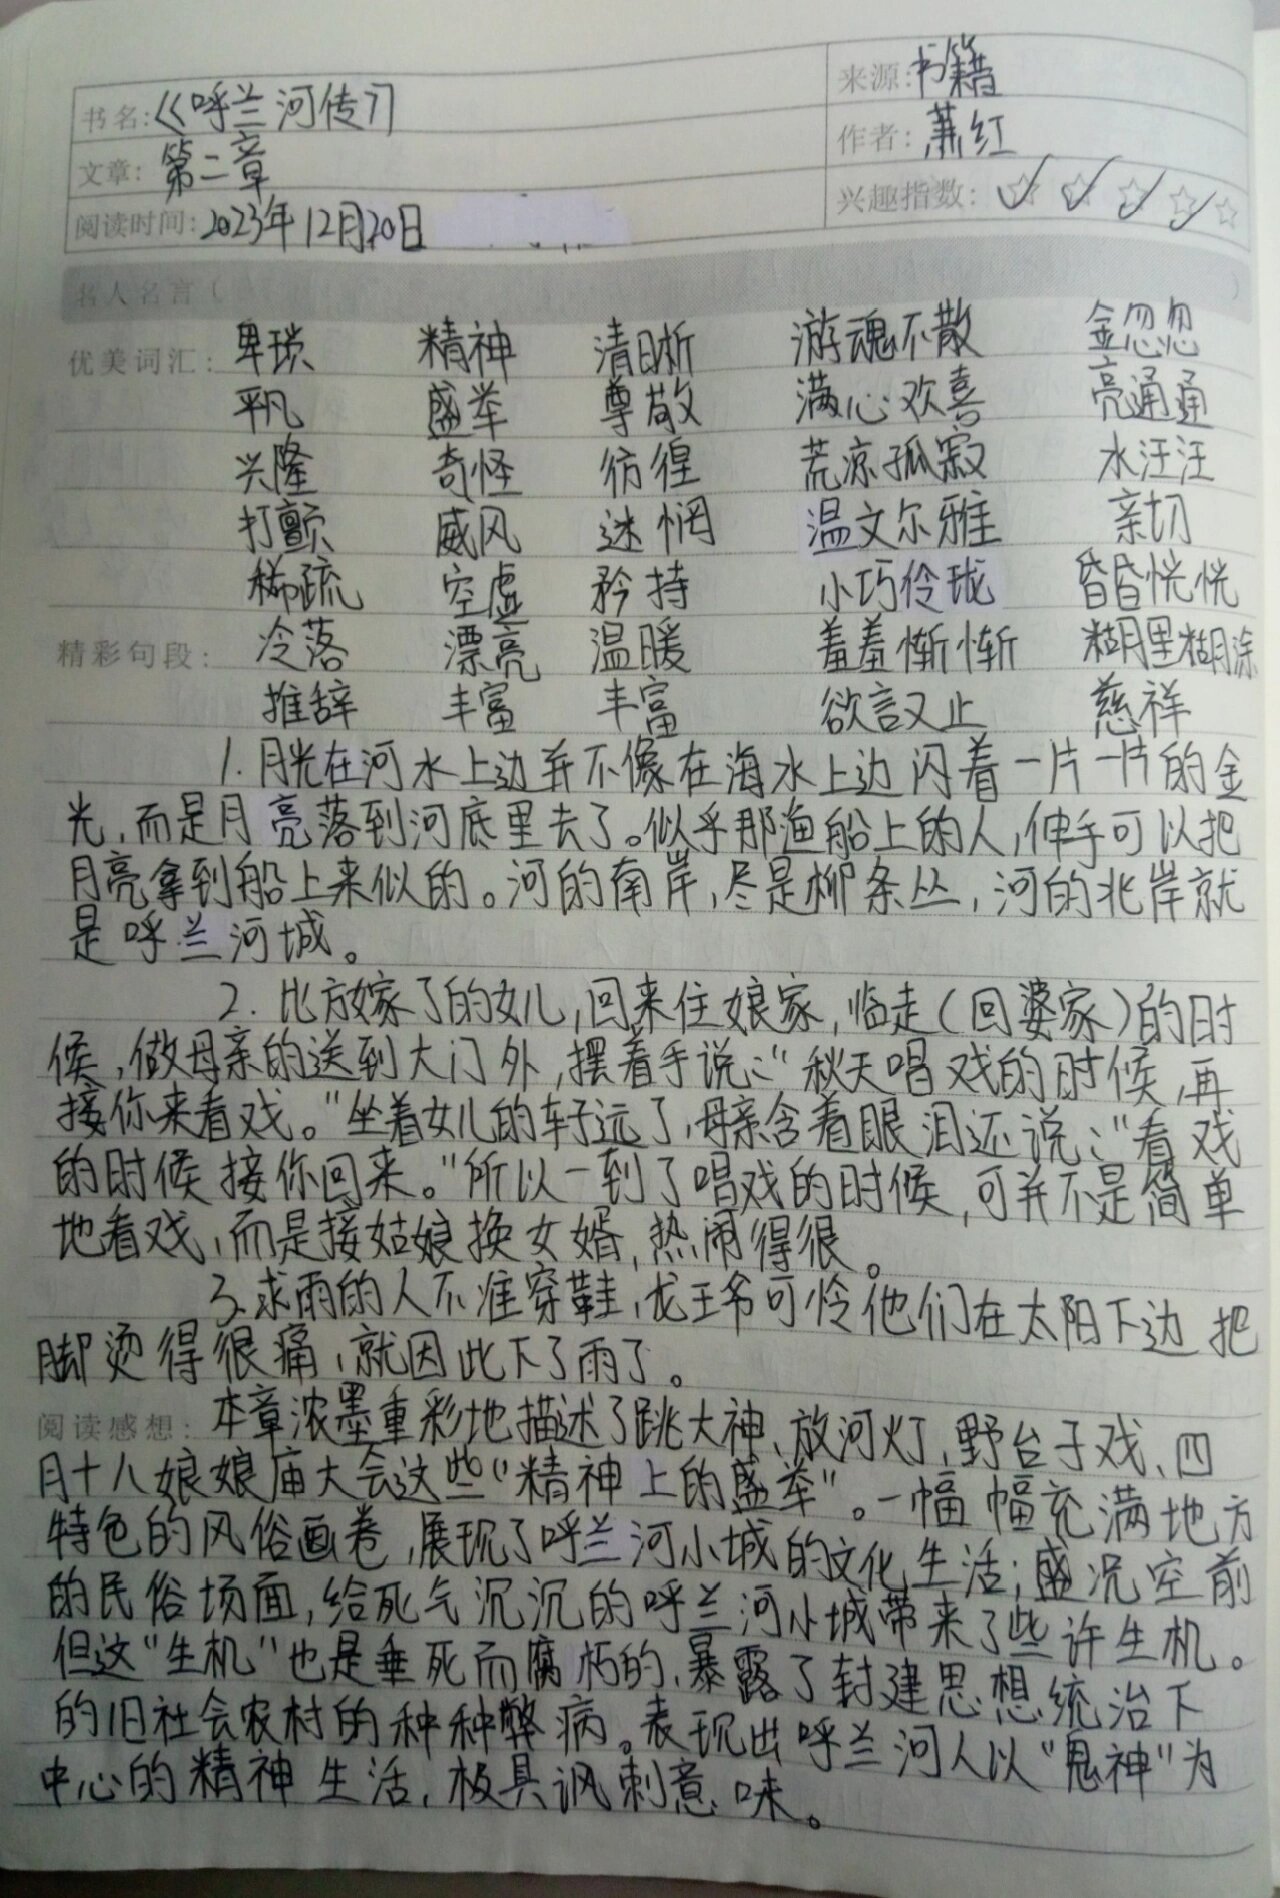 书名:《呼兰河传》 来源:书籍
文章: 第二章 作者: 萧红
阅读时间: 2023年12月20日 兴趣指数:
名人名言(                )
优美词汇: 卑琐 精神 清晰 游魂不散 金忽忽
平凡 盛举 尊敬 满心欢喜 亮通通
兴隆 奇怪 彷徨 荒凉孤寂 水汪汪
打颤 威风 迷惘 温文尔雅 亲切
稀疏 空虚 矜持 小巧伶珑 昏昏恍恍
精彩句段: 冷落 漂亮 温暖 羞羞惭惭 糊里糊涂
推辞 丰富 丰富 欲言又止 慈祥
1.月光在河水上边并不像在海水上边闪着一片一片的金
光,而是月亮落到河底里去了。似乎那渔船上的人,伸手可以把
月亮拿到船上来似的。河的南岸,尽是柳条丛,河的北岸就
是呼兰河城。
2.比方嫁了的女儿,回来住娘家,临走(回婆家)的时
候,做母亲的送到大门外,摆着手说:“秋天唱戏的时候,再
接你来看戏。”坐着女儿的车子远了,母亲含着眼泪还说:“看戏
的时候接你回来。”所以一到了唱戏的时候,可并不是简单
地看戏,而是接姑娘换女婿,热闹得很。
3.求雨的人不准穿鞋,龙王爷可怜他们在太阳下边把
脚烫得很痛,就因此下了雨了。
阅读感想: 本章浓墨重彩地描述了跳大神、放河灯、野台子戏、四
月十八娘娘庙大会这些“精神上的盛举”。一幅幅充满地方
特色的风俗画卷,展现了呼兰河小城的文化生活;盛况空前
的民俗场面,给死气沉沉的呼兰河小城带来了些许生机。
但这“生机”也是垂死而腐朽的,暴露了封建思想统治下
的旧社会农村的种种弊病。表现出呼兰河人以“鬼神”为
中心的精神生活,极具讽刺意味。